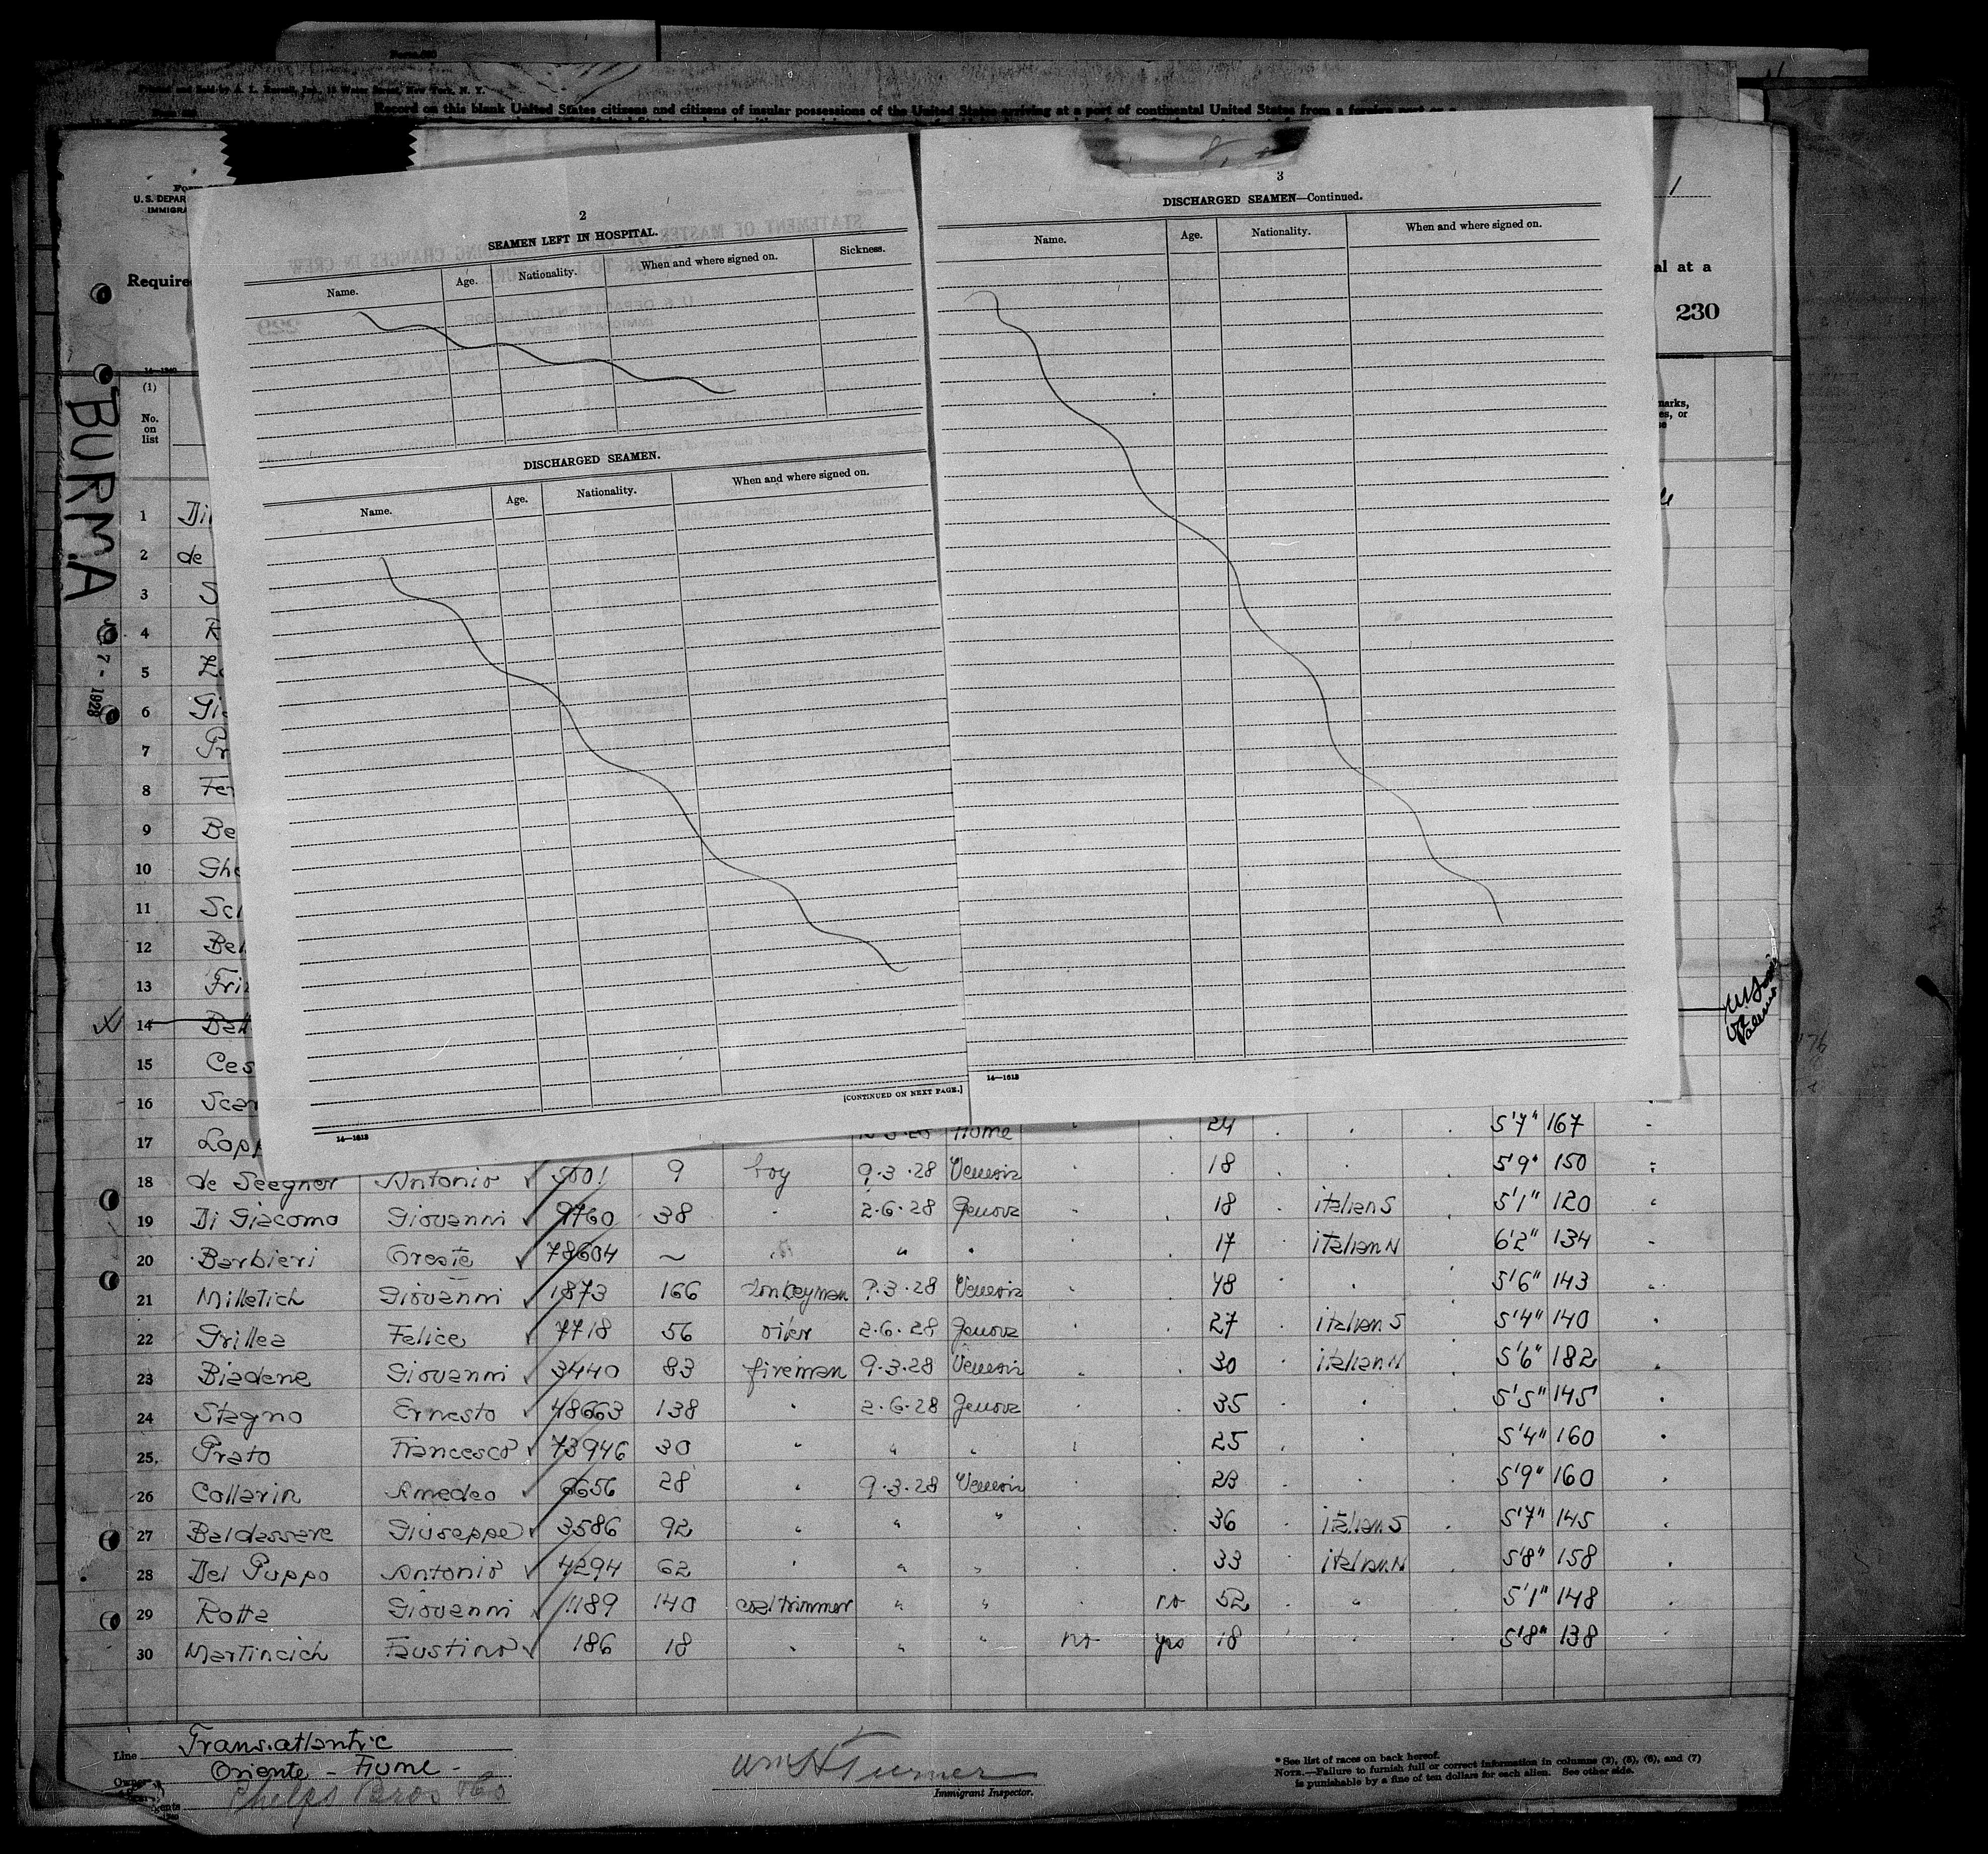 Form
Printed and Sold by A. L. Russell, Inc., 15 Water Street, New York, N. Y.
Record on this blank United States citizens and citizens of insular possessions of the United States arriving at a port of continental United States from a foreign port or a
U. S. DEPAR
IMMIGRA
Require
al at a
230
1
2
SEAMEN LEFT IN HOSPITAL.
Name. Age. Nationality. When and where signed on. Sickness.
DISCHARGED SEAMEN.
Name. Age. Nationality. When and where signed on.
[CONTINUED ON NEXT PAGE.]
14—1613
3
DISCHARGED SEAMEN—Continued.
Name. Age. Nationality. When and where signed on.
14—1613
BURMA
7 - 1928
14—1240
(1)
No.
on
list
marks,
es, or
1 Di
2 de
3 S
4 R
5 Z
6 Gi
7 Pr
8 Fer
9 Be
10 Ghe
11 Sc
12 Bel
13 Fri
14 Ba
15 Ces
16 Scar
17 Lopp Fiume 24 5'7" 167
18 de Seegner Antonio 5001 9 boy 9.3.28 Venezia 18 5'9" 150
19 Di Giacomo Giovanni 9760 38 " 2.6.28 Genova 18 italian S 5'1" 120
20 Barbieri Oreste 78604 ~ " " " 17 italian N 6'2" 134
21 Milletich Giovanni 1873 166 donkeyman 9.3.28 Venezia 48 " 5'6" 143
22 Grillea Felice 7718 56 oiler 2.6.28 Genova 27 italian S 5'4" 140
23 Biadene Giovanni 3440 83 fireman 9.3.28 Venezia 30 italian N 5'6" 182
24 Stagno Ernesto 48663 138 " 2.6.28 Genova 35 " 5'5" 145
25 Prato Francesco 73946 30 " " " 25 " 5'4" 160
26 Collarin Amedeo 6656 28 " 9.3.28 Venezia 23 " 5'9" 160
27 Baldassare Giuseppe 3586 92 " " " 36 italian S 5'7" 145
28 Del Puppo Antonio 4294 62 " " " 33 italian N 5'8" 158
29 Rotta Giovanni 1189 140 coaltrimmer " " no 52 " 5'1" 148
30 Martincich Faustino 186 18 " " " no yes 18 " 5'8" 138
Line Transatlantic
Oriente - Fiume -
Phelps Bros & Co
Wm H Turner
Immigrant Inspector.
* See list of races on back hereof.
NOTE.—Failure to furnish full or correct information in columns (2), (5), (6), and (7)
is punishable by a fine of ten dollars for each alien. See other side.